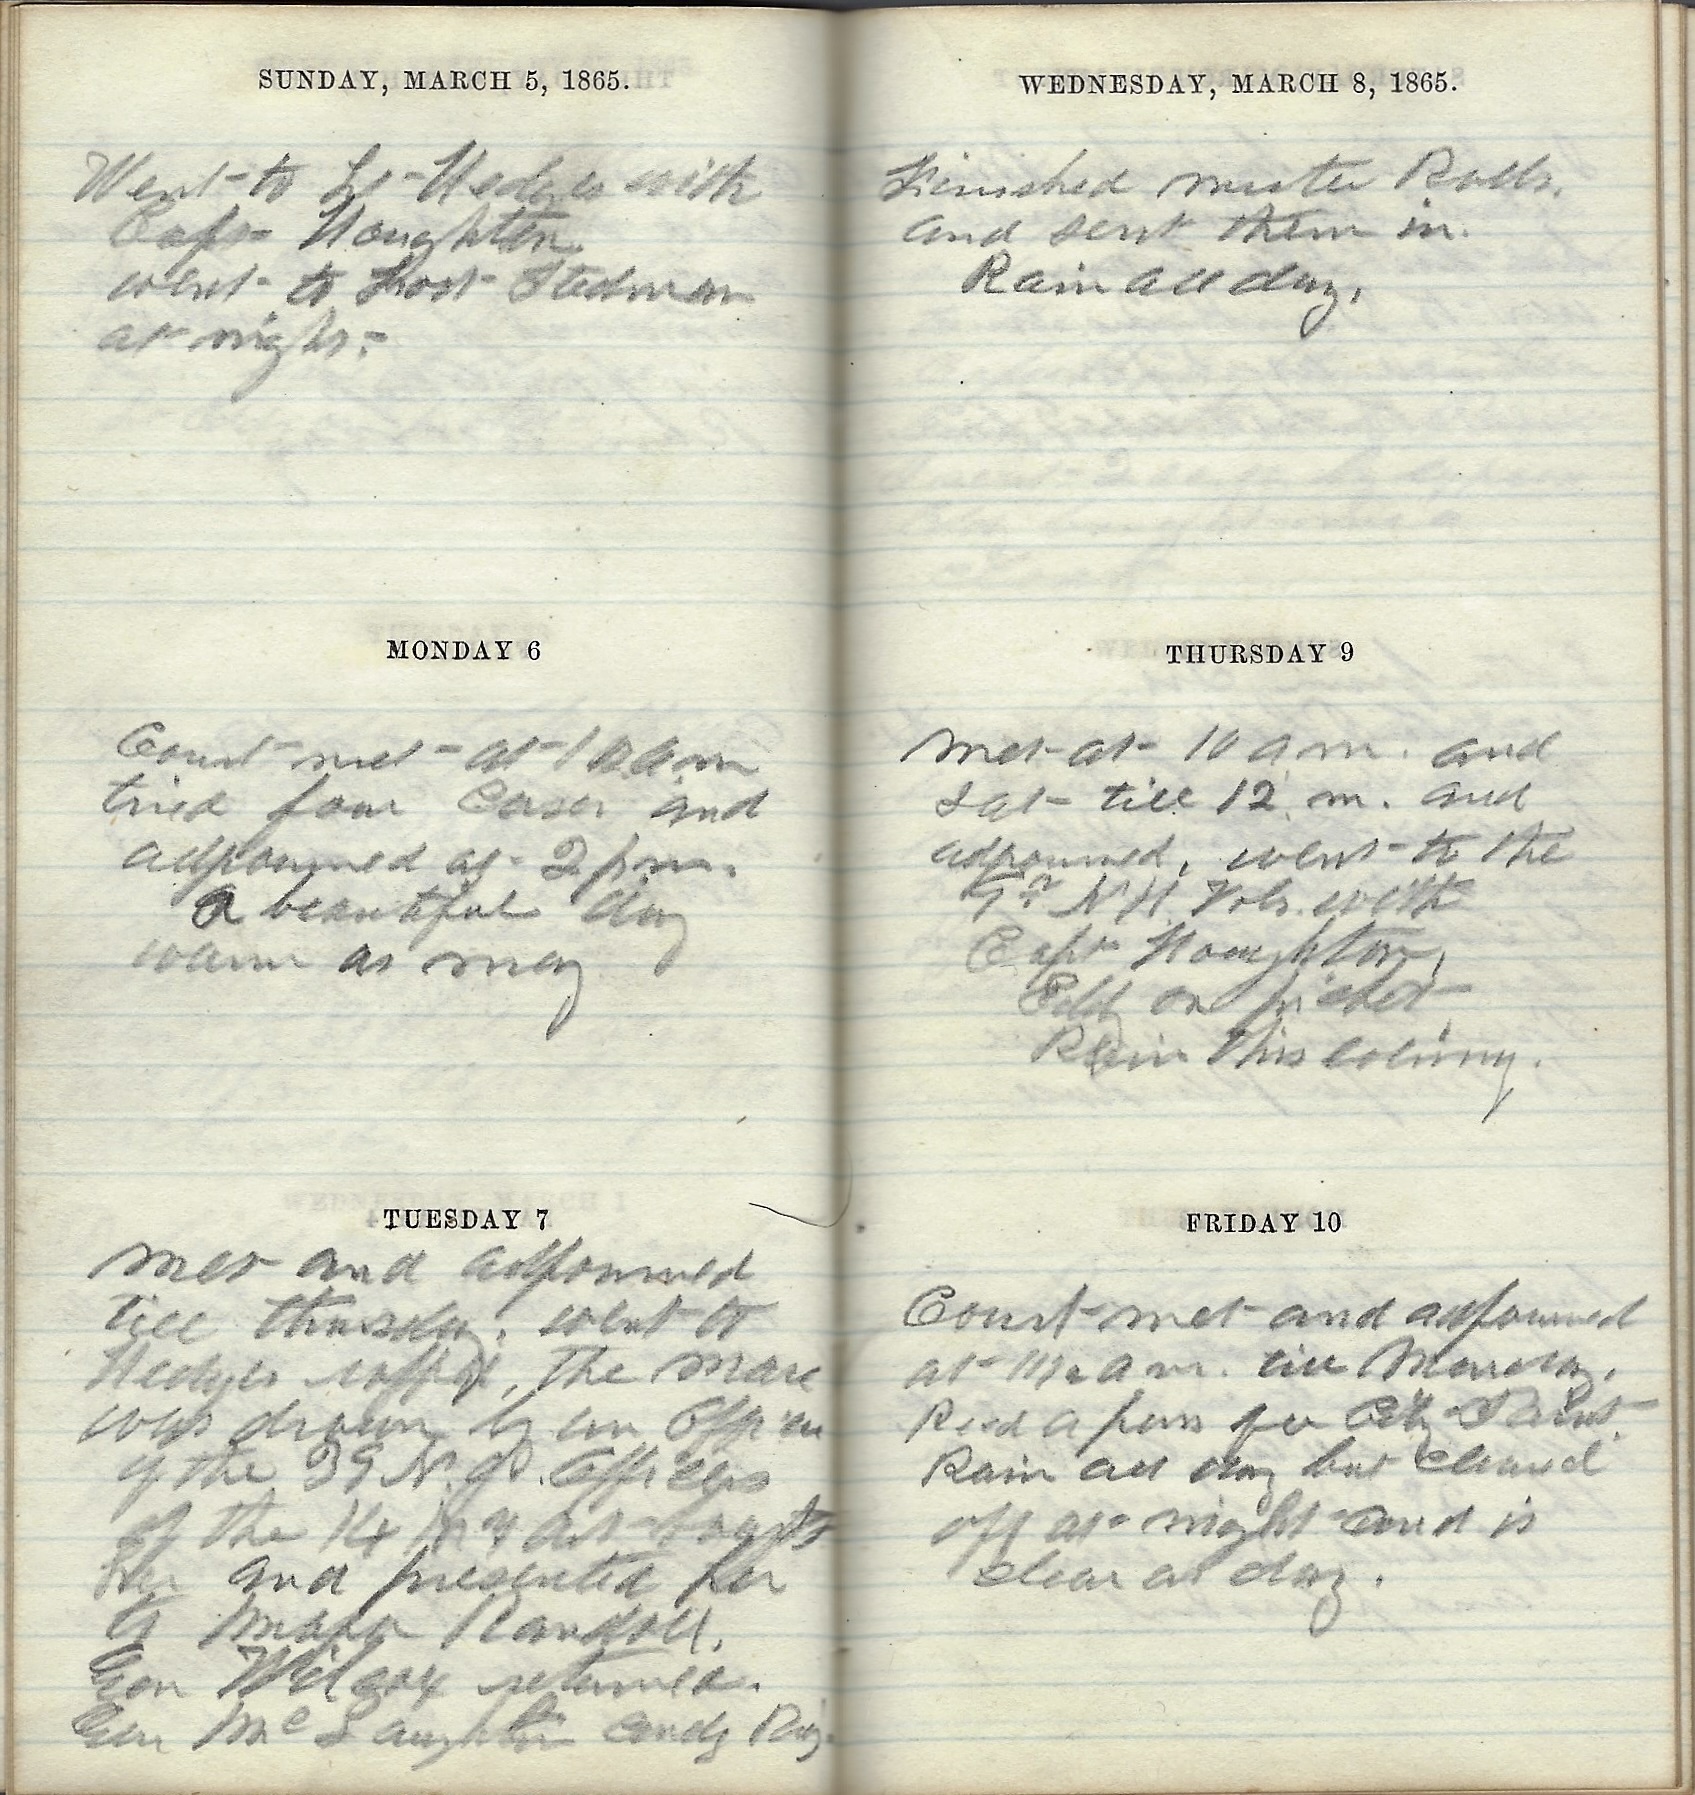 SUNDAY, MARCH 5, 1865.
Went to Lt Hedges with
Capt Houghton
went to Fort Stedman
at night.
MONDAY 6
Court met at 10 a m
tried four Cases and
adjourned at 2 p m.
a beautiful day
warm as may
TUESDAY 7
met and adjourned
till thursday. went to
Hedges The mare
was drawn by an Officer
of the 39 N. J. Officers
of the 14 N Y at bought
her and presented her
to Major Randall.
Gen Wilcox returned.
Gen McLaughlin comdg Brig.
WEDNESDAY, MARCH 8, 1865.
Finished muster Rolls.
and sent them in.
Rain all day.
THURSDAY 9
Met at 10 a m. and
Sat till 12 m. and
adjourned, went to the
N H Vols. with
Capt Houghton,
on picket
Rain this evening.
FRIDAY 10
Court met and adjourned
at 11 1/2 a m. till Monday.
Recd a pass for City Point
Rain all day but cleared
off at night and is
clear as day.